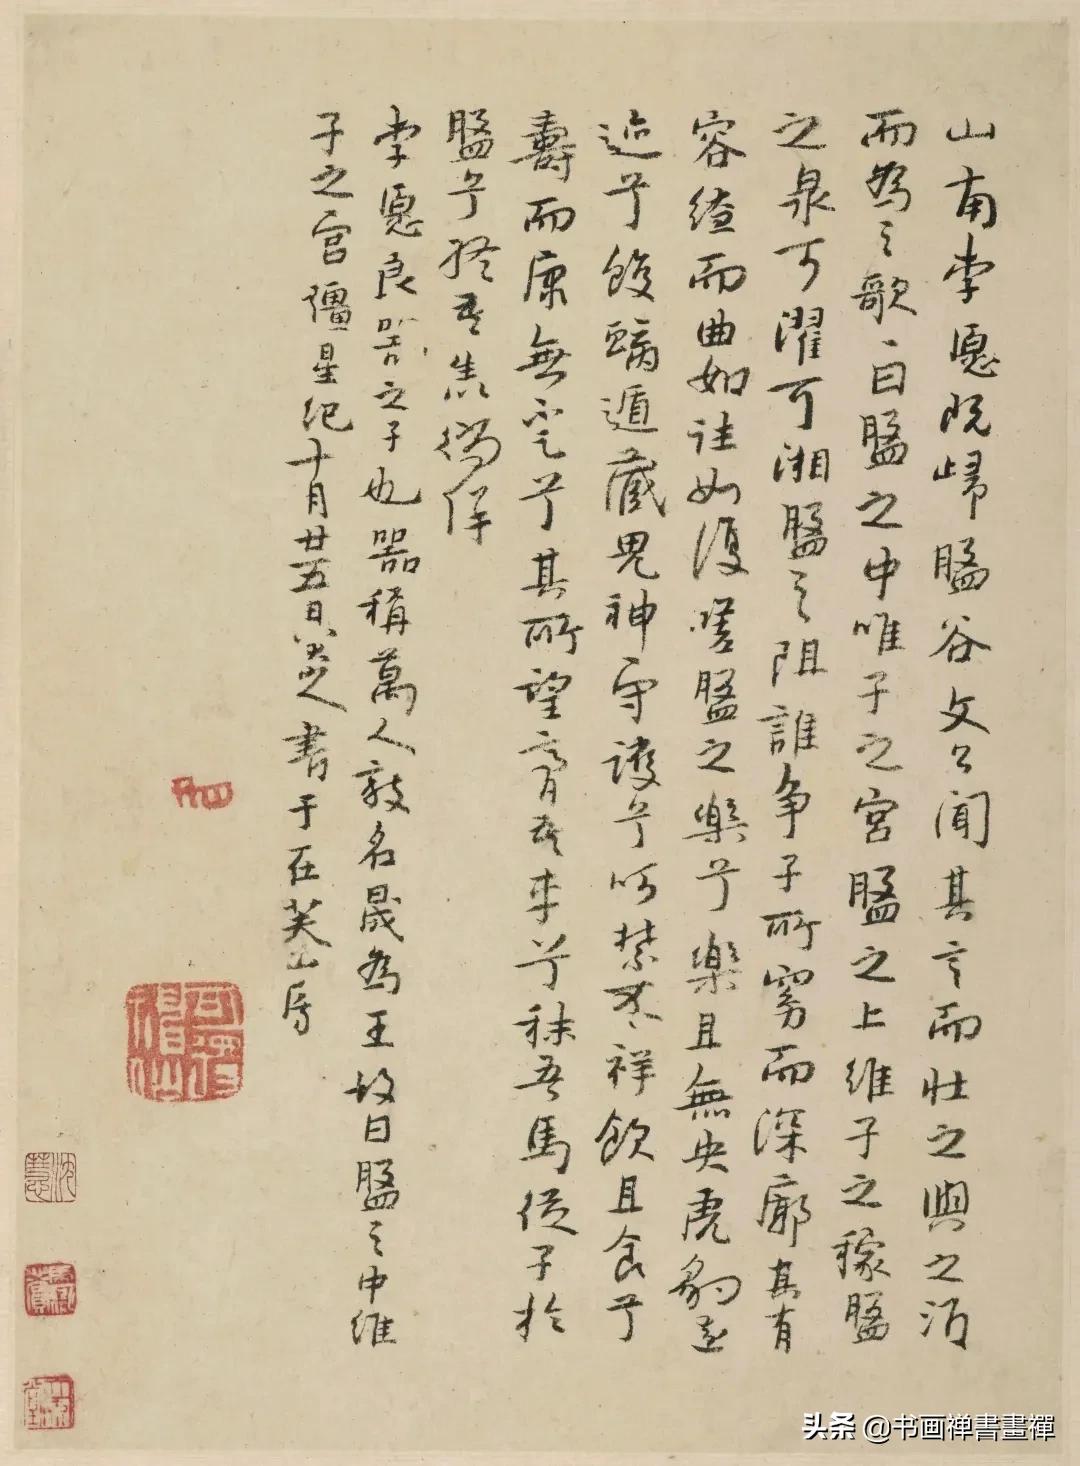 山南李愿既歸盤谷文公聞其言而壯之與之酒
而為之歌曰盤之中唯子之宮盤之上維子之稼盤
之泉可濯可湘盤之阻誰爭子所窈而深廓其有
容繚而曲如往如復嗟盤之樂兮樂且無央虎豹遠
迹兮蛟螭遁藏鬼神守護兮呵禁不祥飲且食兮
壽而康無不足兮其所望膏吾車兮秣吾馬從子於
盤兮終吾生以徜徉
李愿良器之子也器稱萬人敵名晟為王故曰盤之中維
子之宮彊星纪十月廿五日八大山人書于在芙山房
头条 @书画禅書畫禪